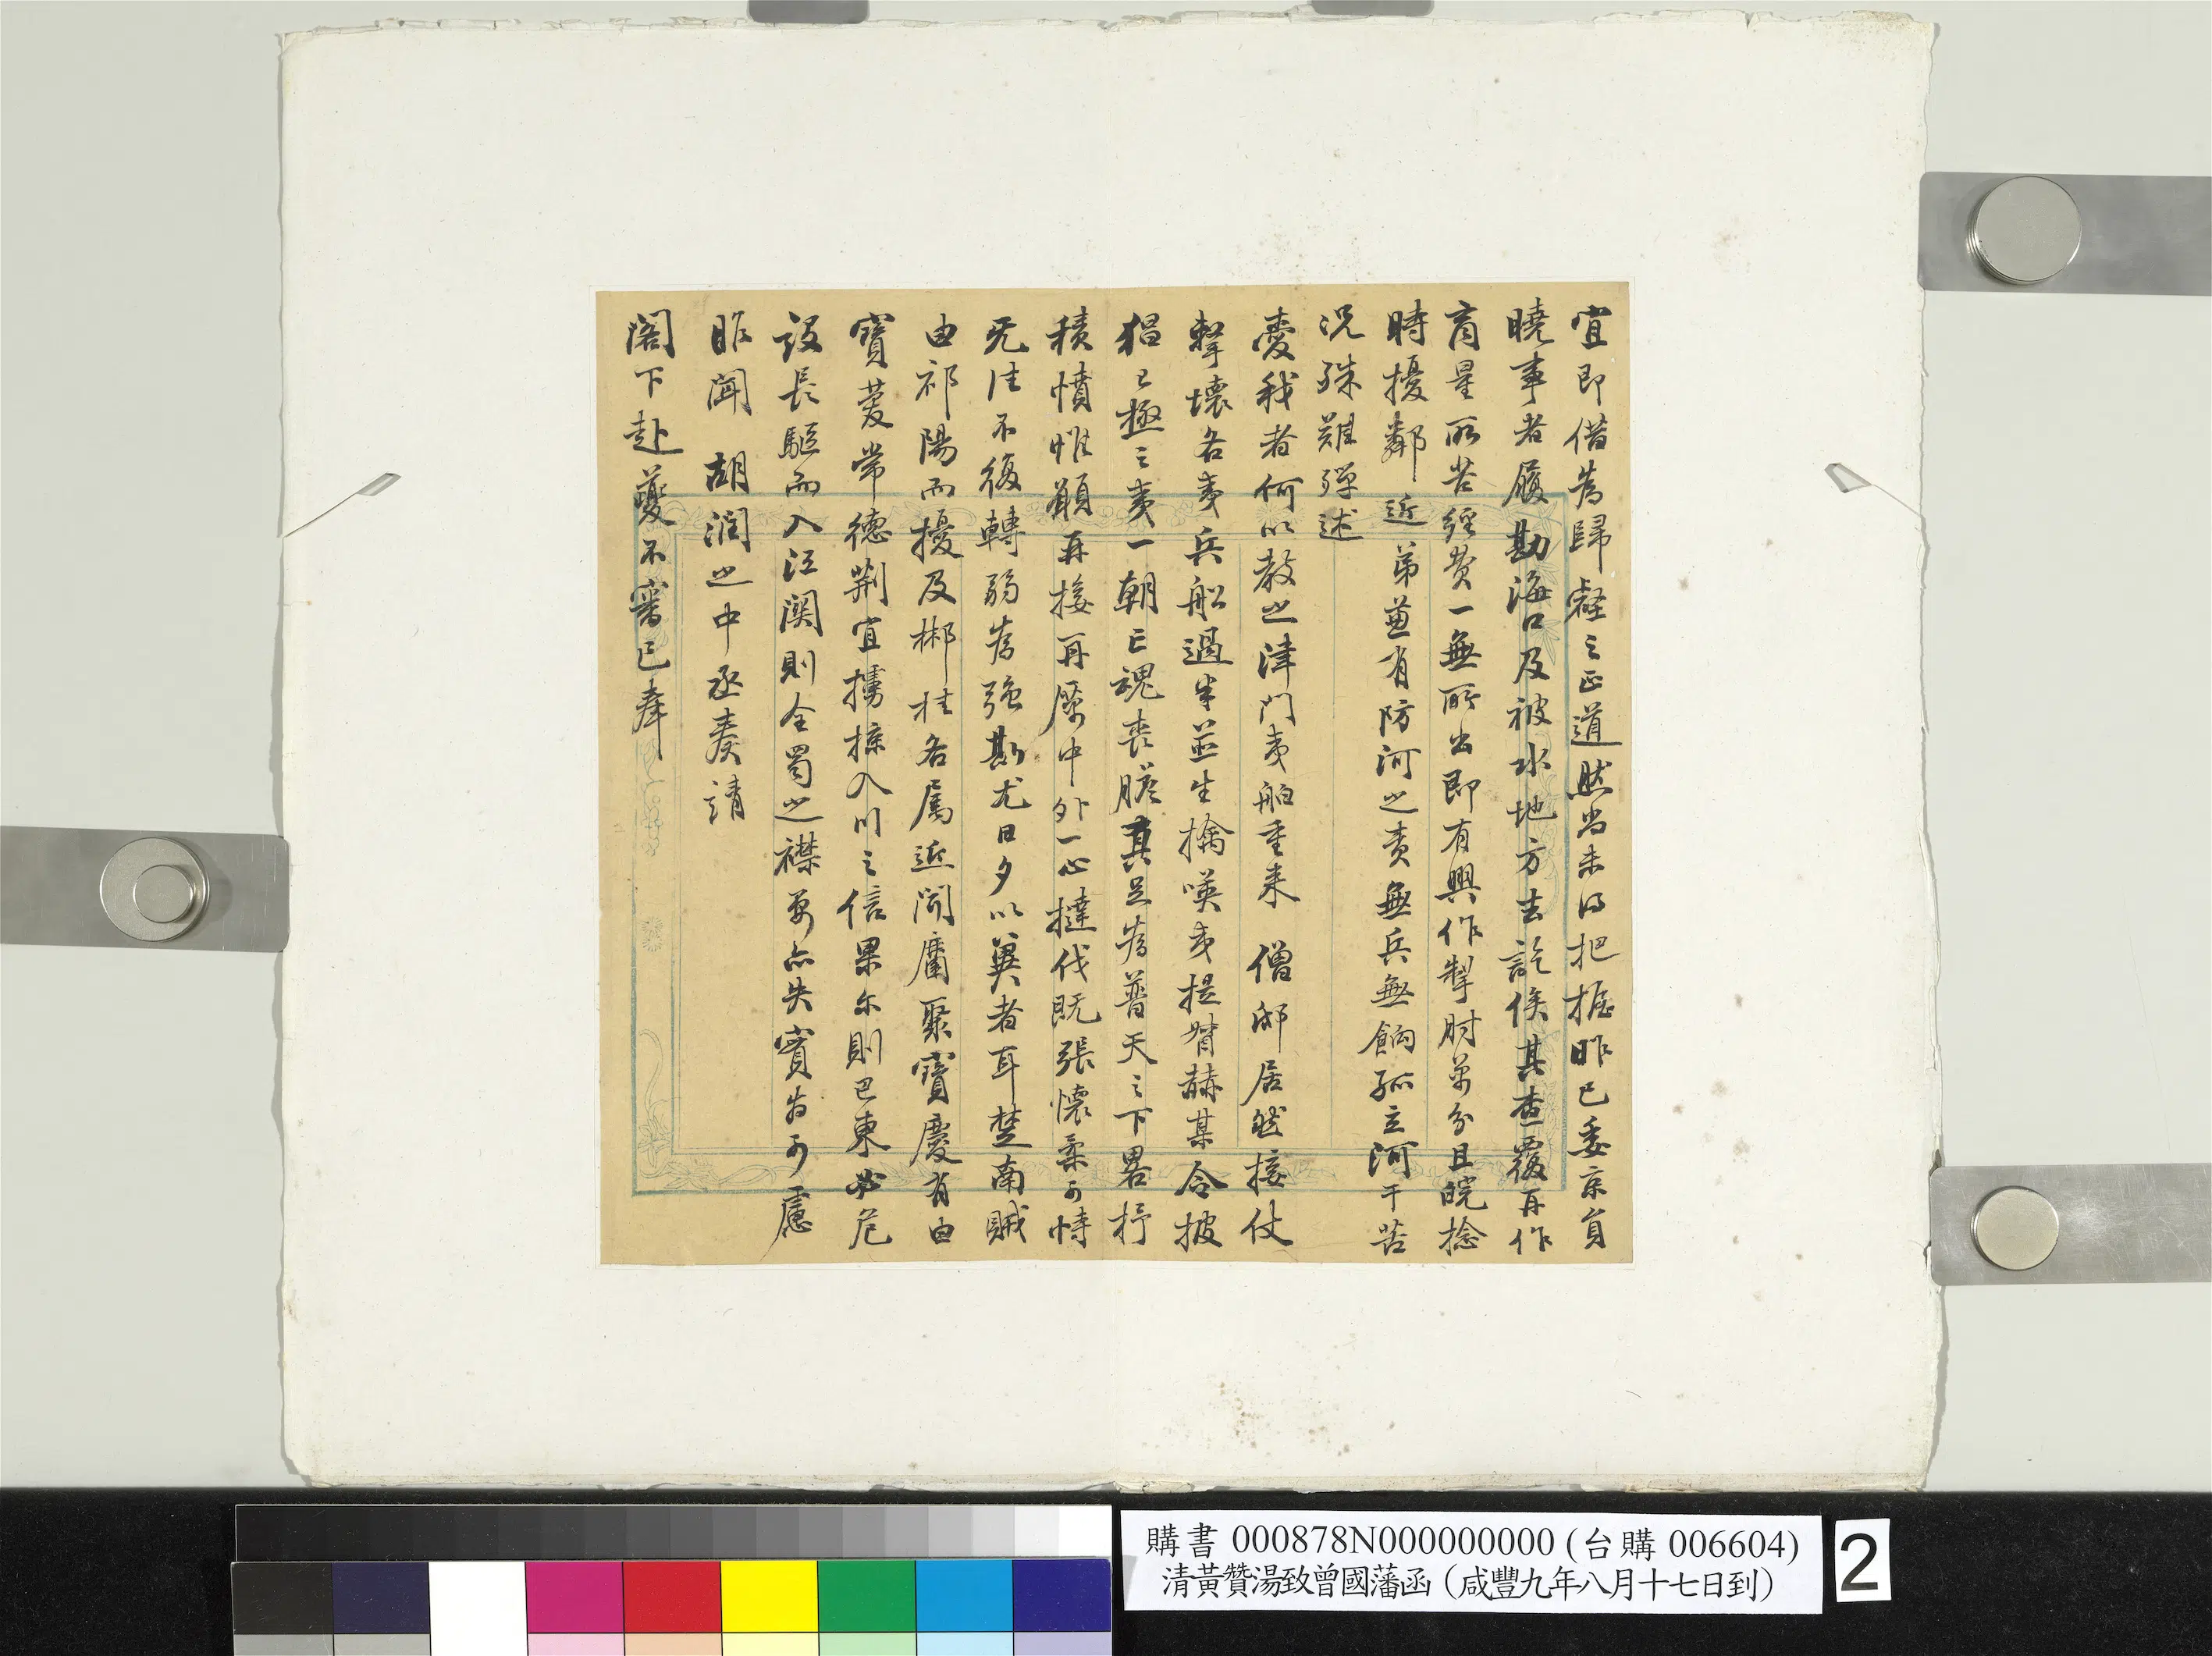 宜即借為歸壑之正道然尚未得把握昨已委京員
曉事者履勘海口及被水地方去訖俟其查覆再作
商量所苦經費一無所出即有興作掣肘萬分且皖捻
時擾鄰近弟兼有防河之責無兵無餉孤立河干苦
況殊難殫述
愛我者何以教之津門夷舶重來 僧邸居然接仗
擊壞各夷兵船過半並生擒㖤夷提督赫某令披
猖已極之夷一朝亡魂喪膽真足為普天之下畧抒
積憤惟願再接再厲中外一心撻伐既張懷柔可恃
旡往不復轉弱為強斯尤日夕以冀者耳楚南賊
由祁陽而擾及郴桂各屬近聞麕聚寶慶有由
寶葽常德荊宜擄掠入川之信果尔則巴東必危
設長驅而入江関則全蜀之襟要亦失實為可慮
昨聞 胡潤之中丞奏請
閣下赴夔不審已奉
購書 000878N000000000 (台購 006604)
清黃贊湯致曾國藩函 (咸豐九年八月十七日到)
2